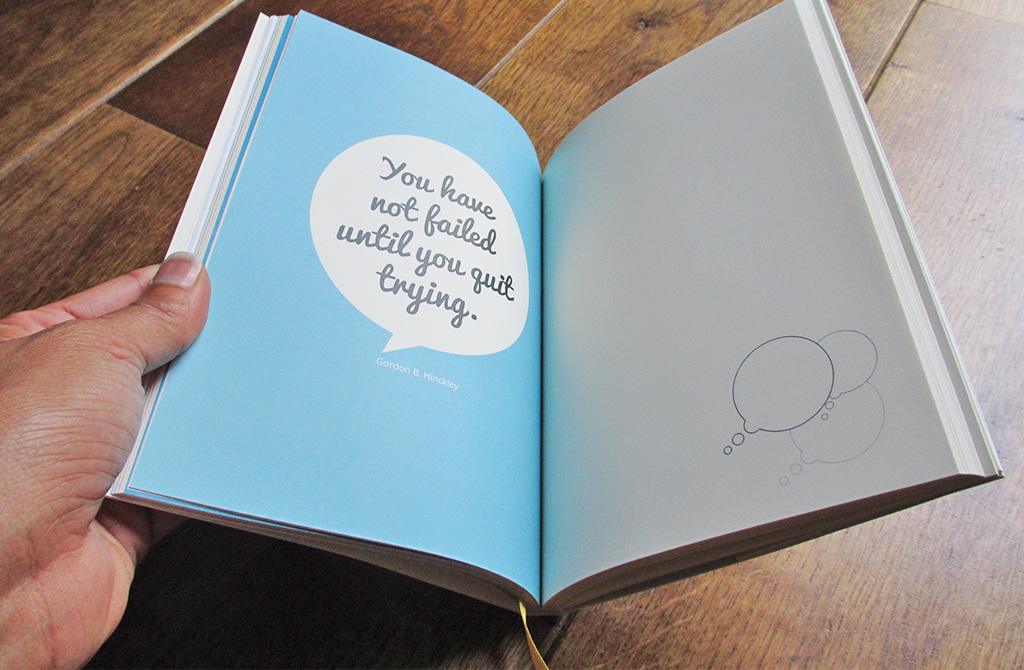 You have
not failed
until you quit
trying.
Gordon B. Hinckley